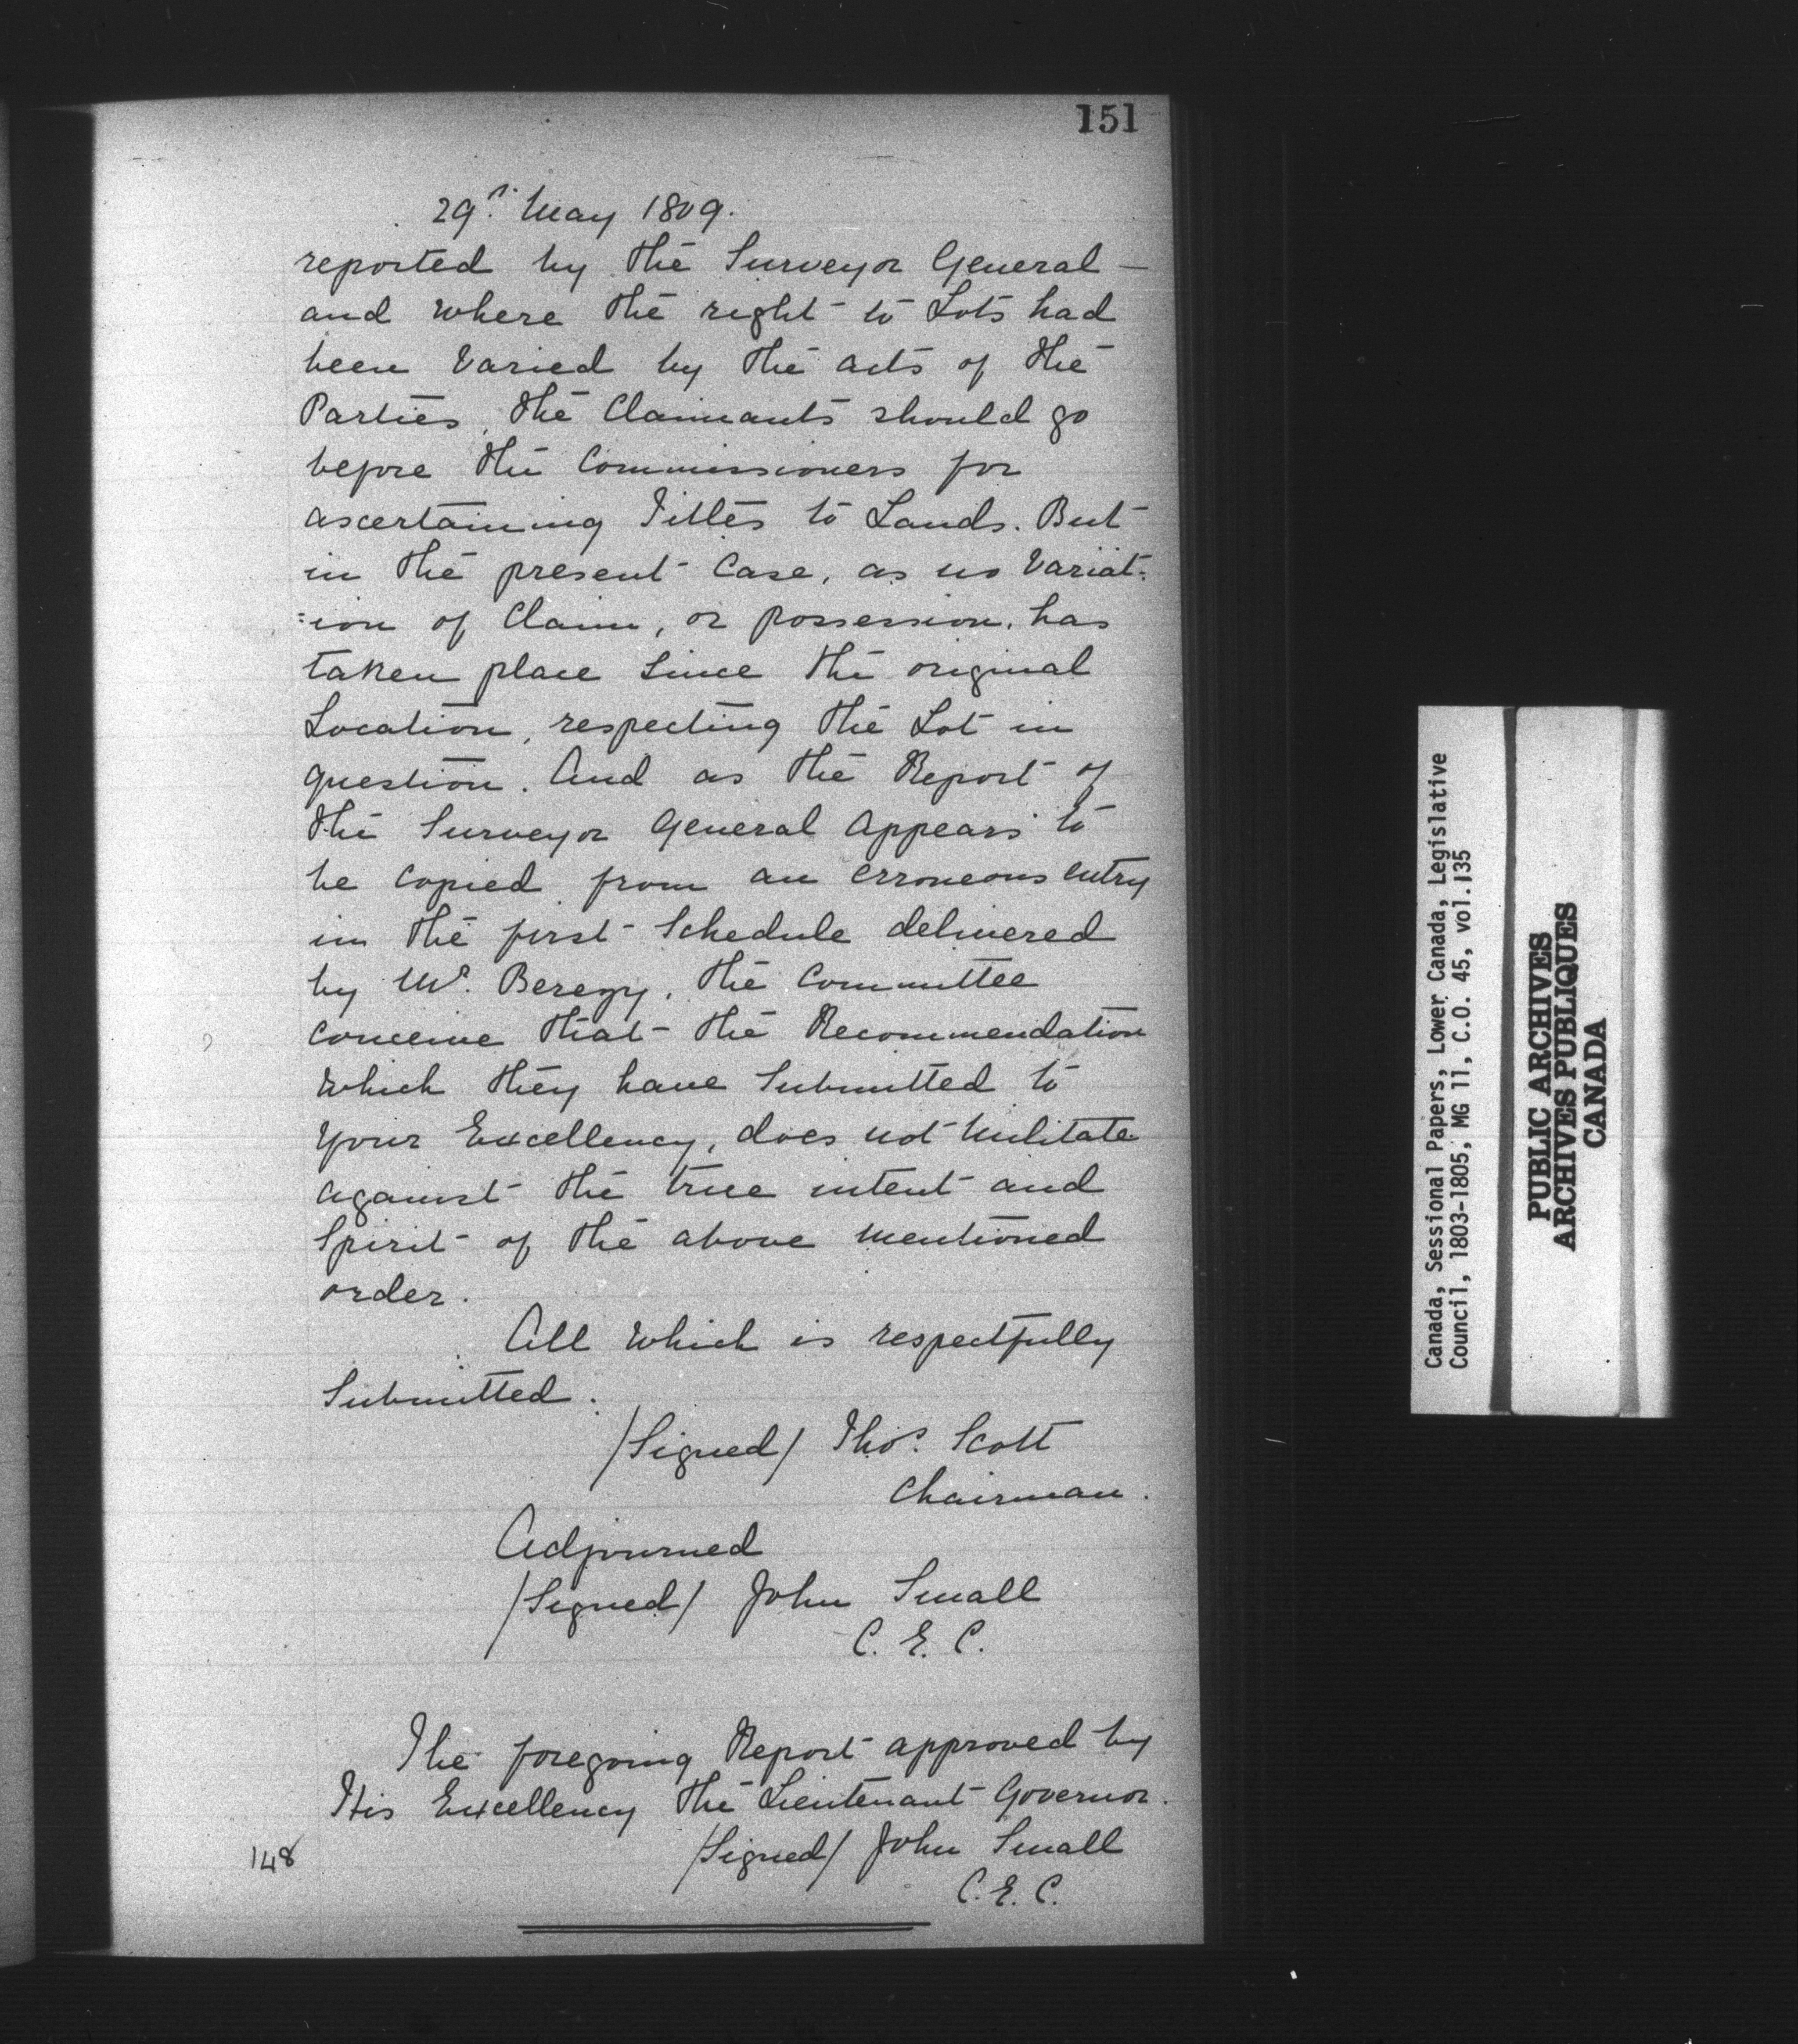 151
29th May 1809.
reported by the Surveyor General —
and where the right to Lots had
been Varied by the acts of the
Parties, the Claimants should go
before the Commissioners for
ascertaining Titles to Lands. But
in the present Case, as no Variat:
:ion of Claim, or possession, has
taken place Since the original
Location, respecting the Lot in
question. And as the Report of
the Surveyor General Appears to
be Copied from an erroneous entry
in the first Schedule delivered
by Mr. Berezy, the Committee
conceive that the Recommendation
which they have Submitted to
Your Excellency, does not Militate
against the true intent and
Spirit of the above mentioned
order.
All which is respectfully
Submitted.
/Signed/ Thos. Scott
Chairman.
Adjourned
/Signed/ John Small
C. E. C.
The foregoing Report approved by
His Excellency the Lieutenant Governor.
/Signed/ John Small
C. E. C.
148
Canada, Sessional Papers, Lower Canada, Legislative
Council, 1803-1805, MG 11, C.O. 45, vol.135
PUBLIC ARCHIVES
ARCHIVES PUBLIQUES
CANADA